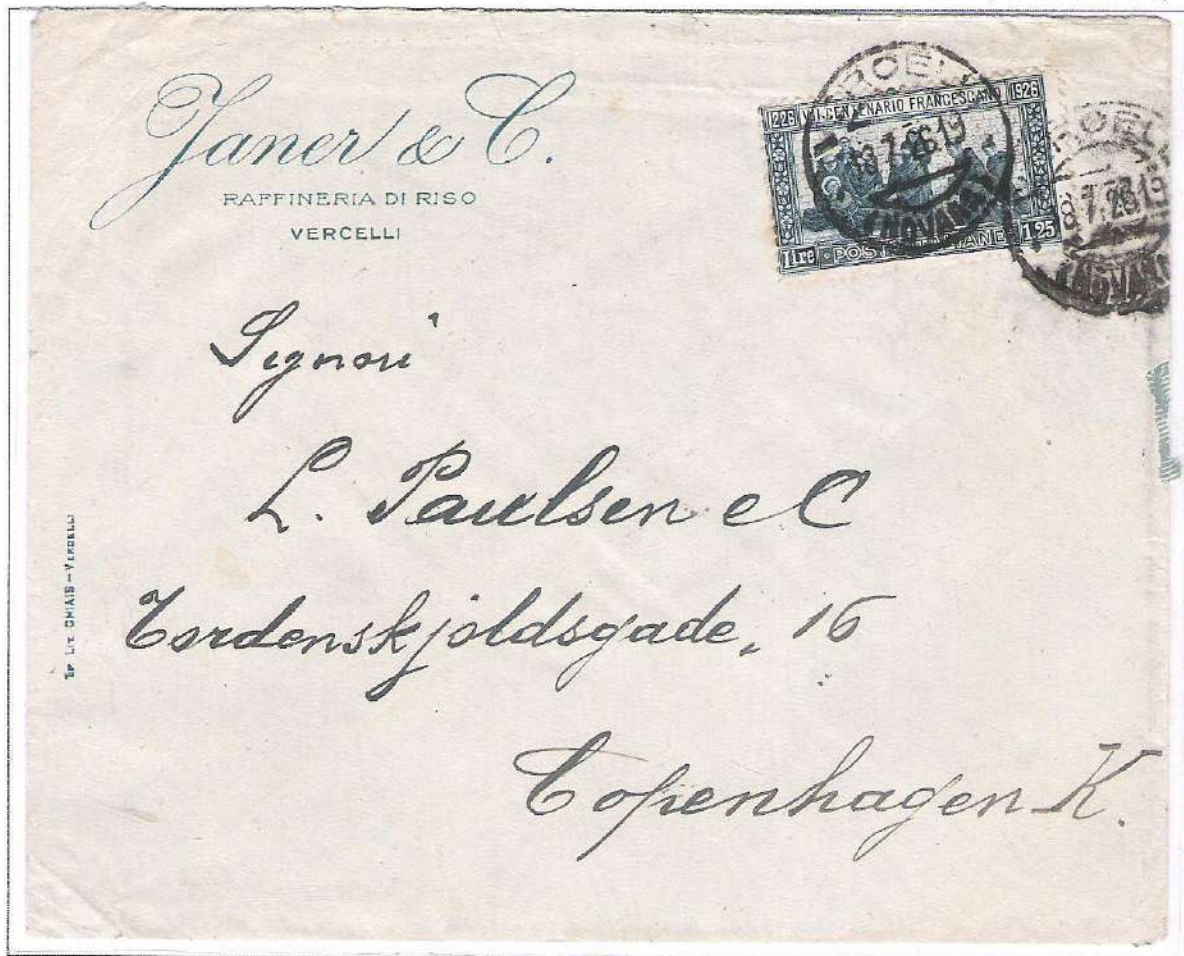 Janer & C.
RAFFINERIA DI RISO
VERCELLI
1226 VII · CENTENARIO FRANCESCANO 1926
lire · POSTE ITALIANE 1,25
18.7.26 19
(NOVARA)
7.26 19
(NOVARA)
Signori
L. Paulsen e C
Tordenskjoldsgade, 16
Copenhagen K.
TIP. LIT. CHIAIS - VERCELLI